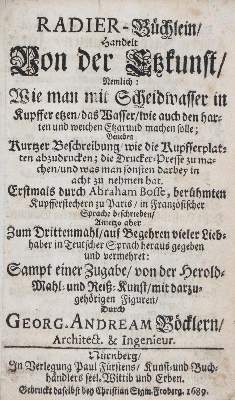 RADIER-Büchlein/
Handelt
Von der Etzkunst/
Nemlich:
Wie man mit Scheidwasser in
Kupffer etzen/das Wasser/wie auch den har-
ten und weichen Etzgrund machen solle;
Beneben
Kurtzer Beschreibung/wie die Kupfferplat-
ten abzudrucken; die Drucker-Presse zu ma-
chen/und was man sonsten darbey in
acht zu nehmen hat.
Erstmals durch Abraham Bosse, berühmten
Kupfferstechern zu Paris/in Frantzösischer
Sprache beschrieben/
Anietzo aber
Zum Drittenmahl/auf Begehren vieler Lieb-
haber in Teutscher Sprach heraus gegeben
und vermehret:
Sampt einer Zugabe/von der Herold-
Mahl- und Reiß-Kunst/mit darzu-
gehörigen Figuren/
Durch
GEORG-ANDREAM Böcklern/
Architect. & Ingenieur.
Nürnberg/
In Verlegung Paul Fürstens/Kunst-und Buch-
händlers seel. Wittib und Erben.
Gedruckt daselbst bey Christian Sigm. Froberg. 1689.